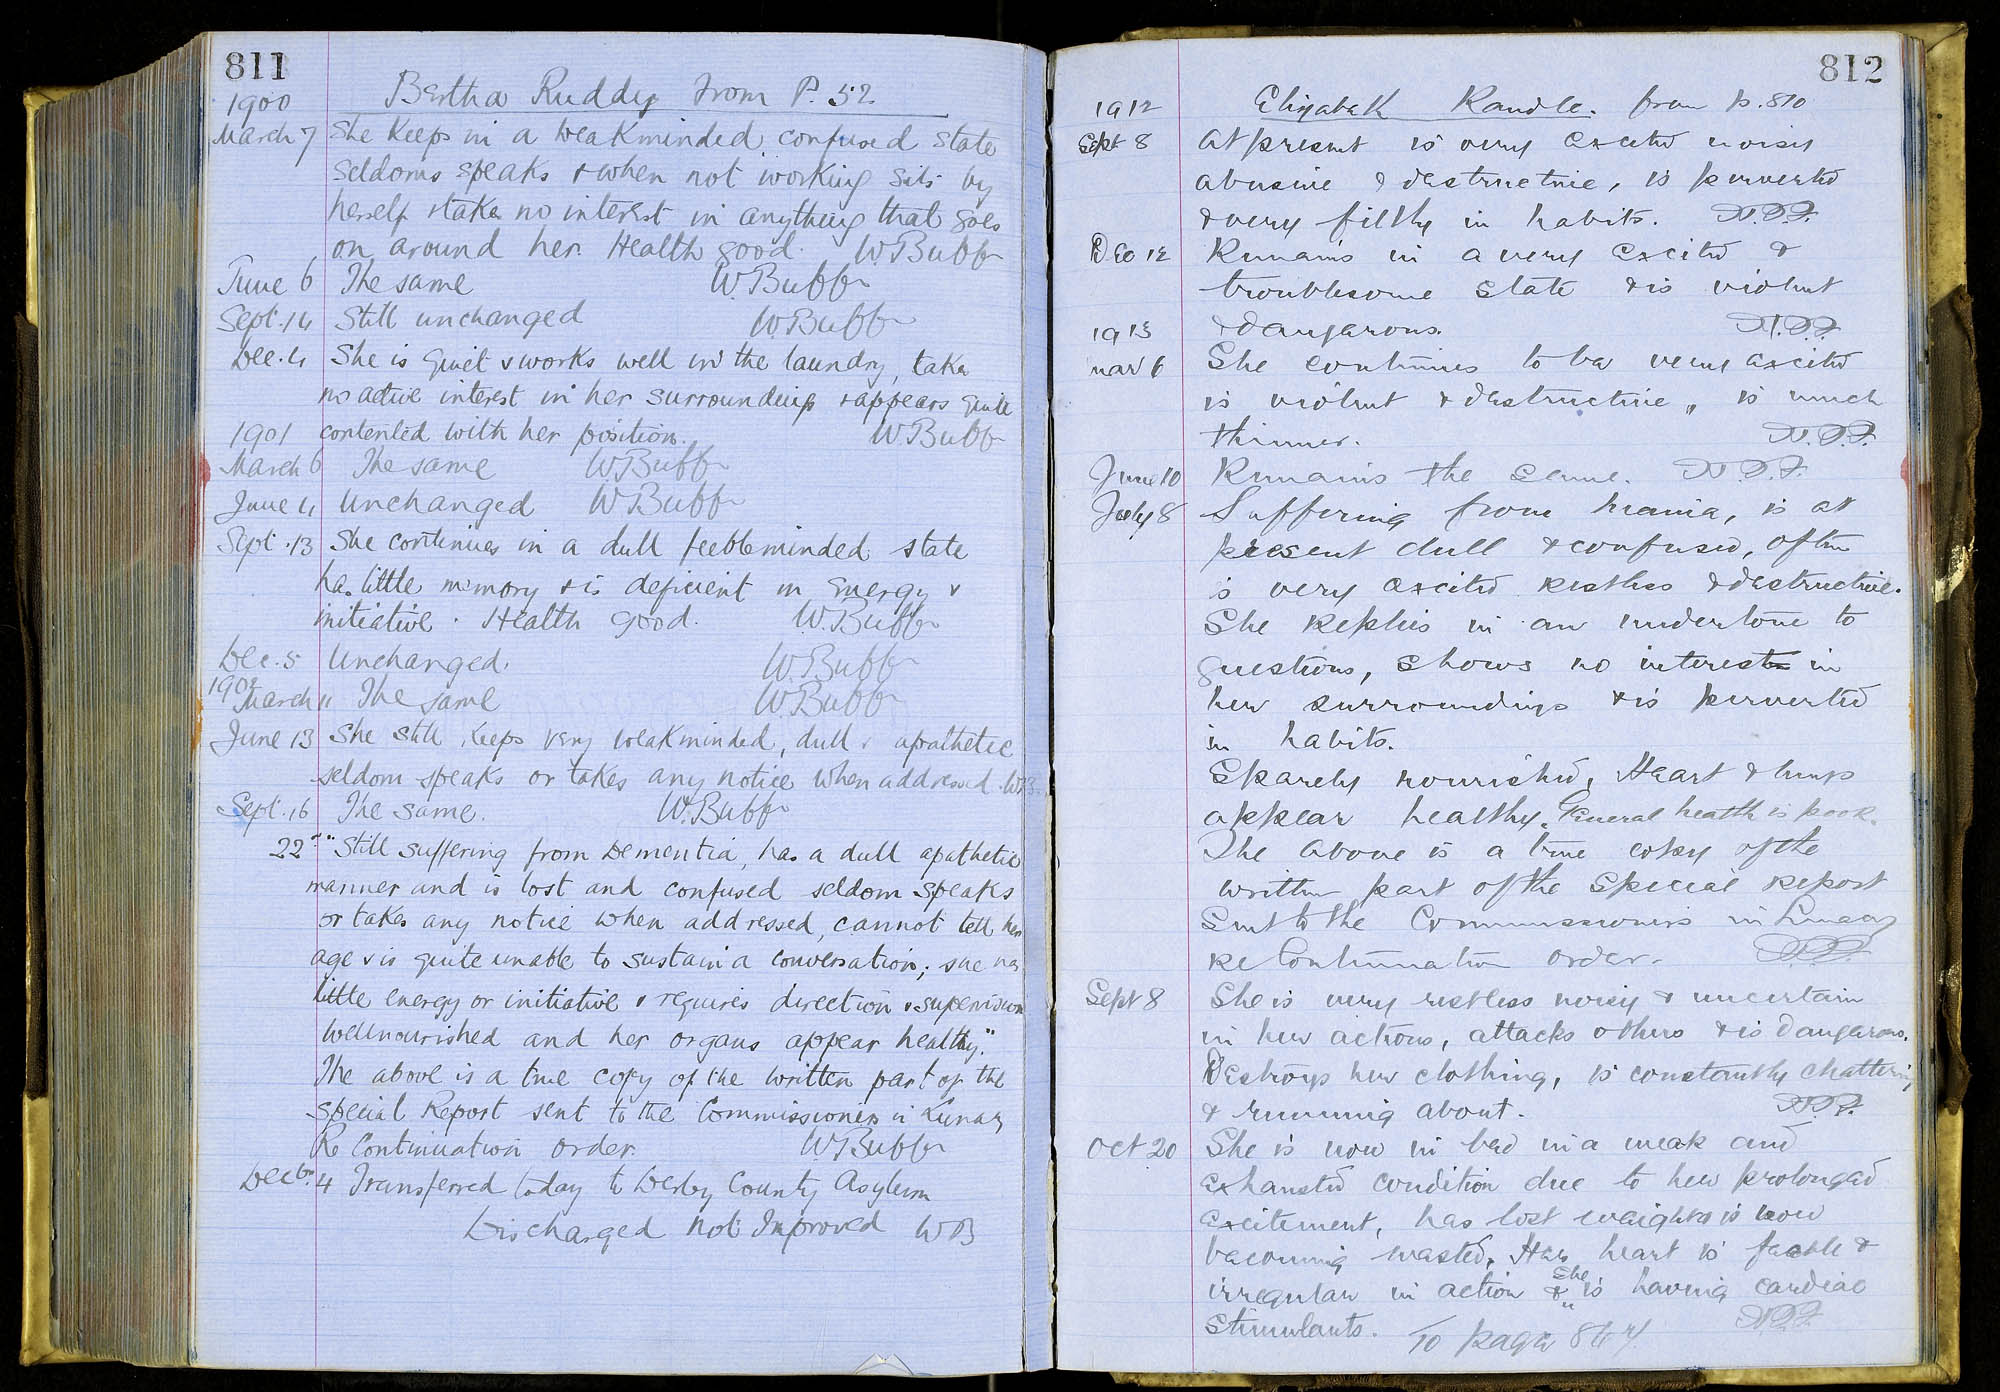 811
Bertha Ruddy from P. 52
1900
March 7 She keeps in a weakminded confused state
seldoms speaks & when not working sits by
herself & takes no interest in anything that goes
on around her. Health good. W. Bubb
June 6 The same W. Bubb
Sept. 14 Still unchanged W. Bubb
Dec. 4 She is quiet & works well in the laundry, takes
no active interest in her surroundings & appears quite
1901 contented with her position. W Bubb
March 6 The same W. Bubb
June 4 Unchanged W Bubb
Sept. 13 She continues in a dull feebleminded state
has little memory & is deficient in energy &
initiative. Health good. W. Bubb
Dec. 5 Unchanged. W. Bubb
1902
March 11 The same W. Bubb
June 13 She still keeps very weakminded, dull & apathetic
seldom speaks or takes any notice when addressed. WB.
Sept. 16 The same. W. Bubb
22nd "Still suffering from Dementia, has a dull apathetic
manner and is lost and confused seldom speaks
or takes any notice when addressed, cannot tell her
age & is quite unable to sustain a conversation; she has
little energy or initiative & requires direction & supervision
Wellnourished and her organs appear healthy."
The above is a true copy of the written part of the
Special Report sent to the Commissioners in Lunacy
Re Continuation order. W Bubb
Decbr. 4 Transferred today to Derby County Asylum
Discharged Not Improved WB
812
1912 Elizabeth Randle. from p. 810
Sept 8 At present is very excited noisy
abusive & destructive, is perverted
& very filthy in habits.
Dec 12 Remains in a very excited &
troublesome state & is violent
1913 & dangerous.
Mar 6 She continues to be very excited
is violent & destructive, is much
thinner.
June 10 Remains the same.
July 8 Suffering from mania, is at
present dull & confused, often
is very excited restless & destructive.
She replies in an undertone to
questions, shows no interest in
her surroundings & is perverted
in habits.
Sparely nourished, Heart & lungs
appear healthy. General health is poor.
The above is a true copy of the
written part of the Special report
Sent to the Commissioners in Lunacy
re Continuation order.
Sept 8 She is very restless noisy & uncertain
in her actions, attacks others & is dangerous.
Destroys her clothing, is constantly chattering
& running about.
Oct 20 She is now in bed in a weak and
exhausted condition due to her prolonged
excitement, has lost weight & is now
becoming wasted. Her heart is feeble &
irregular in action & she is having cardiac
stimulants.
To page